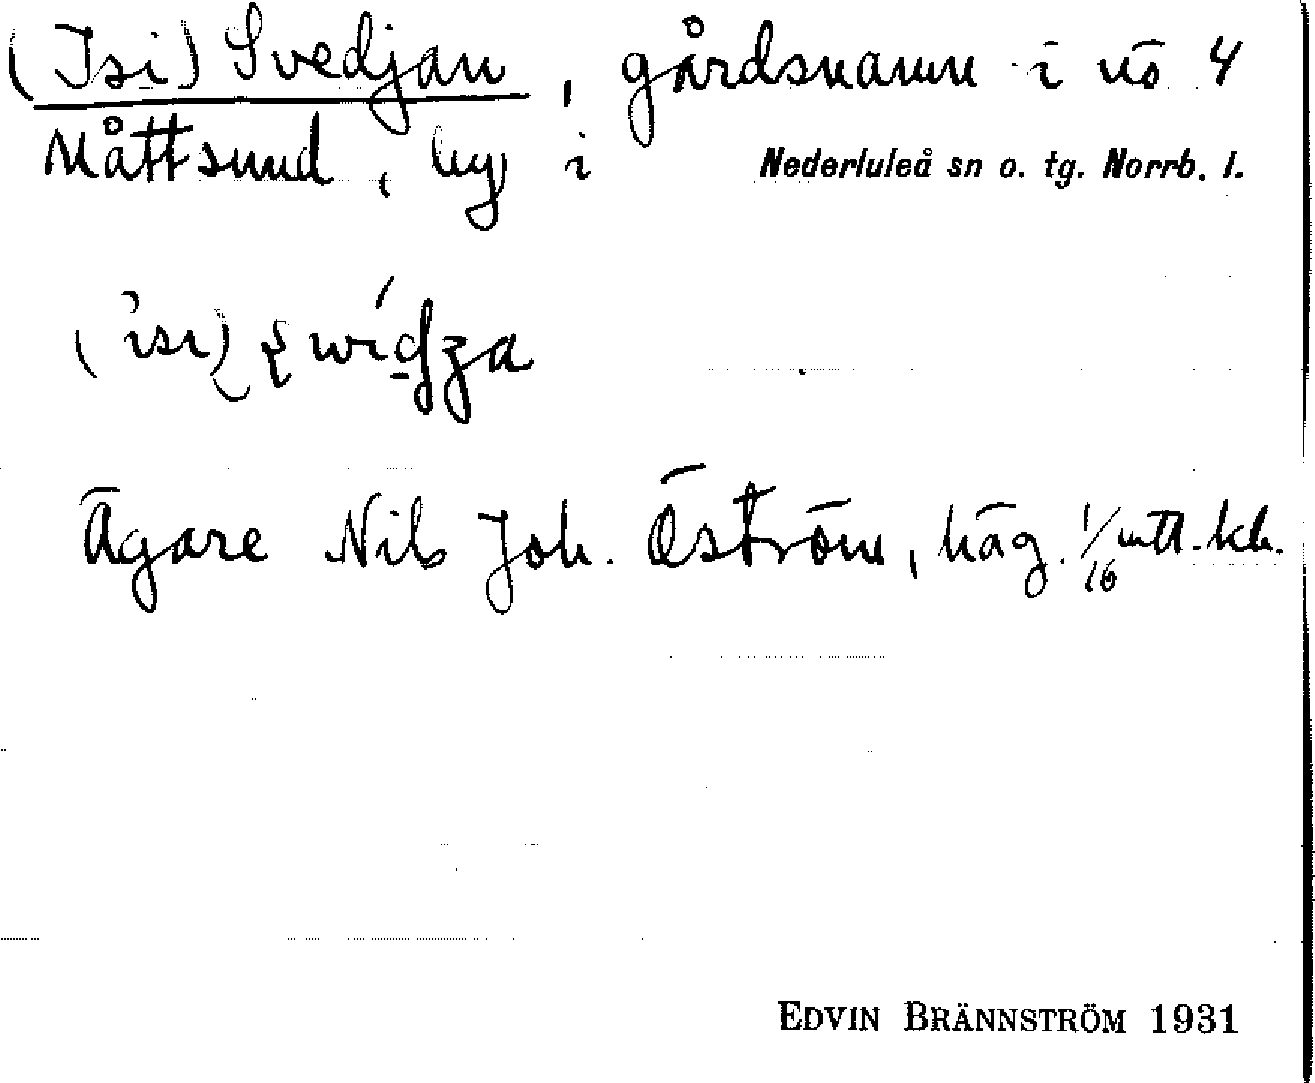 (Isi) Svedjan, gårdsnamn i nö 4
Måttsund, by i Nederluleå sn o. tg. Norrb. l.
Ägare Nils Joh. Öström, häg. 1/16 mtl. kr.
EDVIN BRÄNNSTRÖM 1931